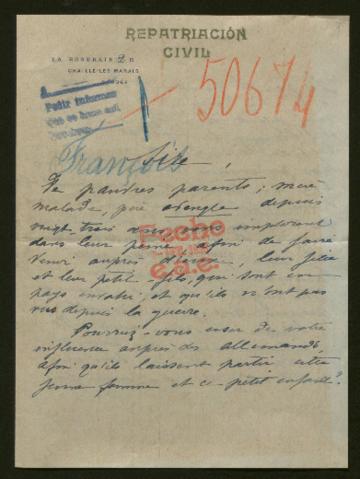 REPATRIACIÓN
CIVIL
CHAILLÉ-LES-MARAIS
50674
Pedir informes
François
Sire !
De pauvres parents ; mère
malade, père aveugle depuis
vingt-trois ans vous implorent
dans leur peine afin de faire
venir auprès leur fille
et leur petit-fils, qui sont en
pays envahi, et qu'ils n'ont pas
vus depuis la guerre.
Fecho
e.a.e.
Pourriez-vous user de votre
influence auprès des allemands
afin qu'ils laissent partir cette
jeune femme et ce petit enfant ?